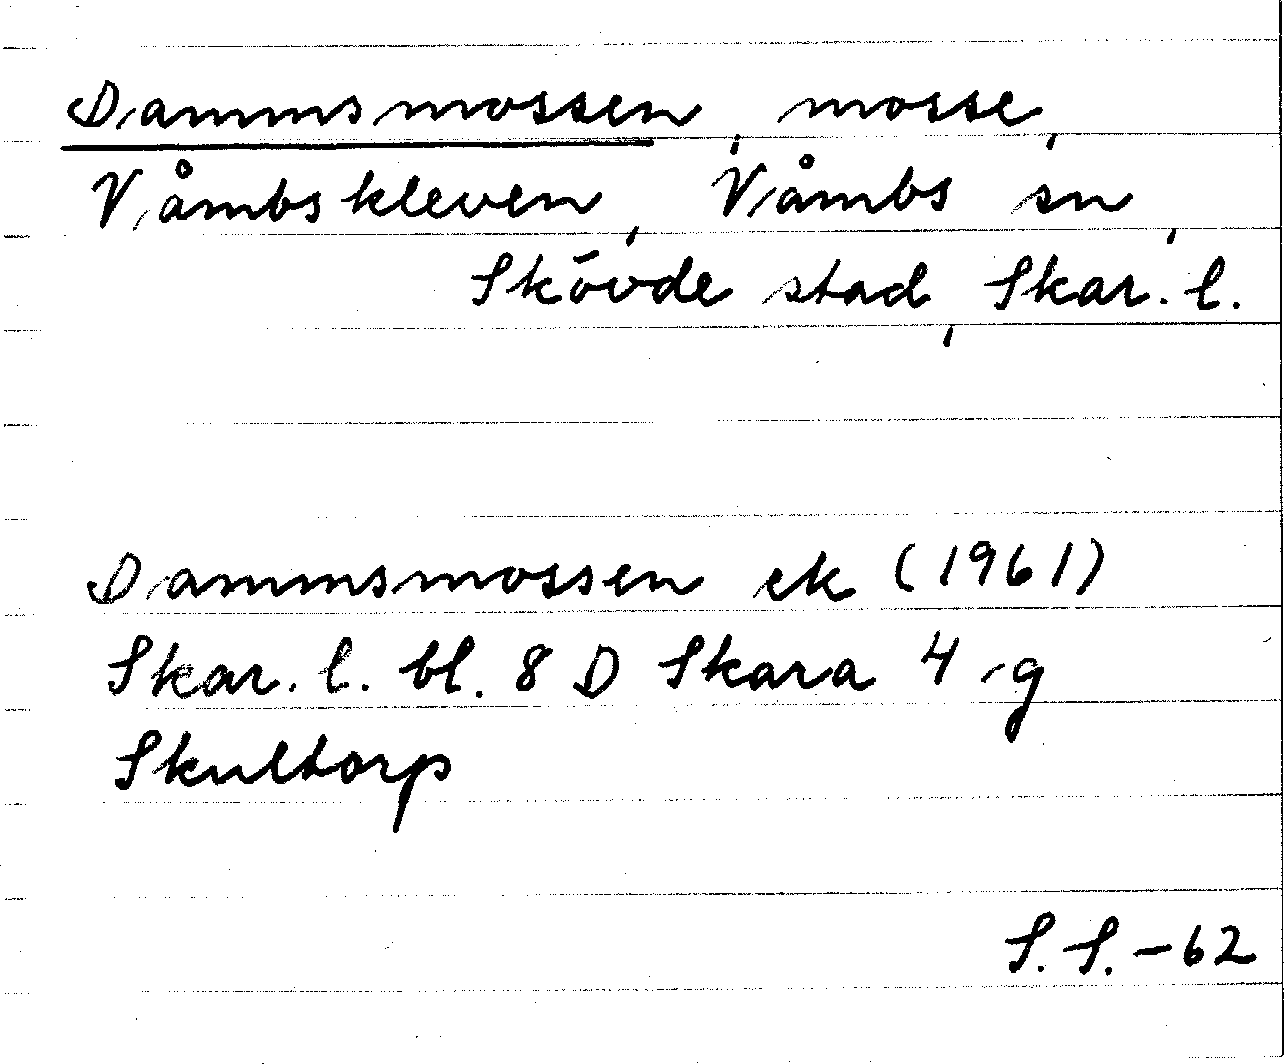 Dammsmossen, mosse,
Våmbskleven, Våmbs sn,
Skövde stad, Skar. l.
Dammsmossen ek (1961)
Skar. l. bl. 8 D Skara 4 g
Skultorp
S. S. -62